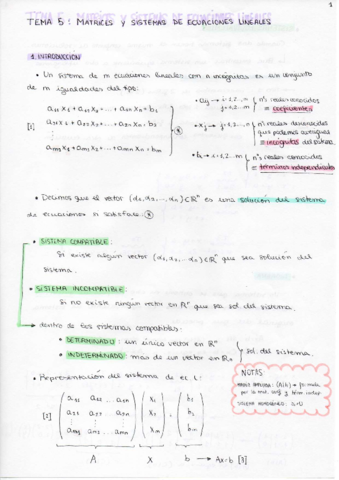 TEMA 5: MATRICES Y SISTEMAS DE ECUACIONES LINEALES
1. INTRODUCCIÓN
• Un sistema de m ecuaciones lineales con n incógnitas es un conjunto
de m igualdades del tipo:
a11 x1 + a12 x2 + ... + a1n xn = b1
a21 x1 + a22 x2 + ... + a2n xn = b2
[1]
am1 x1 + am2 x2 + ... + amn xn = bm
• aij → i=1,2...m j=1,2...n nºs reales conocidos = coeficientes
• xj → j=1,2...n nºs reales
= incógnitas del sistema
• bi → i=1,2...m nºs reales conocidos = términos independientes
• Decimos que el vector (α1, α2, ..., αn) ∈ Rⁿ es una solución del sistema
de ecuaciones si satisface:
• SISTEMA COMPATIBLE:
Si existe algún vector (α1, α2, ... αn) ∈ Rⁿ que sea solución del
sistema.
• SISTEMA INCOMPATIBLE:
Si no existe ningún vector en Rⁿ que sea sol. del sistema.
→ dentro de los sistemas compatibles:
• DETERMINADO: un único vector en Rⁿ
• INDETERMINADO: más de un vector en Rⁿ
sol. del sistema.
• Representación del sistema de ec. 1:
NOTAS
(A|b) →
[2] a11 a12 ... a1n x1 b1
a21 a22 ... a2n x2 = b2
am1 am2 ... amn xn bm
A X b → Ax=b [3]